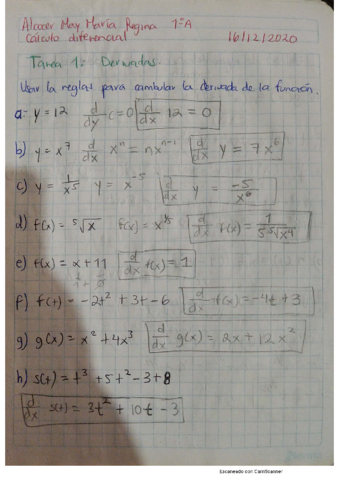 Alcocer May María Regina 1°A
Cálculo diferencial 16/12/2020
Tarea 1: Derivadas.
Usar la reglas para cambular la derivada de la función.
a- y = 12 d/dy c = 0 d/dx 12 = 0
b) y = x^7 d/dx x^n = nx^n-1 d/dx y = 7x^6
c) y = 1/x^5 y = x^-5 d/dx y = -5/x^6
d) f(x) = ⁵√x f(x) = x^1/5 d/dx f(x) = 1/5⁵√x^4
e) f(x) = x + 11 d/dx f(x) = 1
1 + 0
f) f(t) = -2t² + 3t - 6 d/dx f(x) = -4t + 3
g) g(x) = x² + 4x³ d/dx g(x) = 2x + 12x²
h) s(t) = t³ + 5t² - 3 + 8
d/dx s(t) = 3t² + 10t - 3
Escaneado con CamScanner